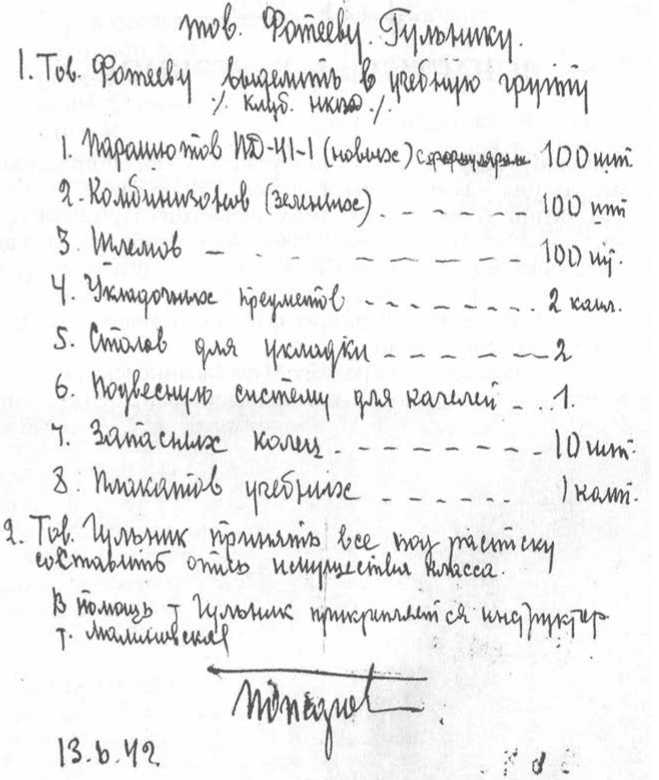 тов. Фотееву. Гульнику.
1. Тов. Фотееву выделить в учебную группу
⁒ клуб. НКПС ⁒
1. Парашютов ПД-41-1 (новых) с формулярами 100 шт.
2. Комбинизонов (зеленых). - - - - 100 шт
3. Шлемов - - - - - - - - 100 шт.
4. Укладочных предметов - - - - - - - 2 компл.
5. Столов для укладки - - - - - - 2
6. Подвесную систему для качелей - .. 1.
7. Запасных колец - - - - - - - - 10 шт.
8. Плакатов учебных - - - - - 1 комп.
2. Тов. Гульник принять все под расписку
составить опись имущества класса.
В помощь т Гульник прикрепляется инструктор
т. Малиновская
13.6.42